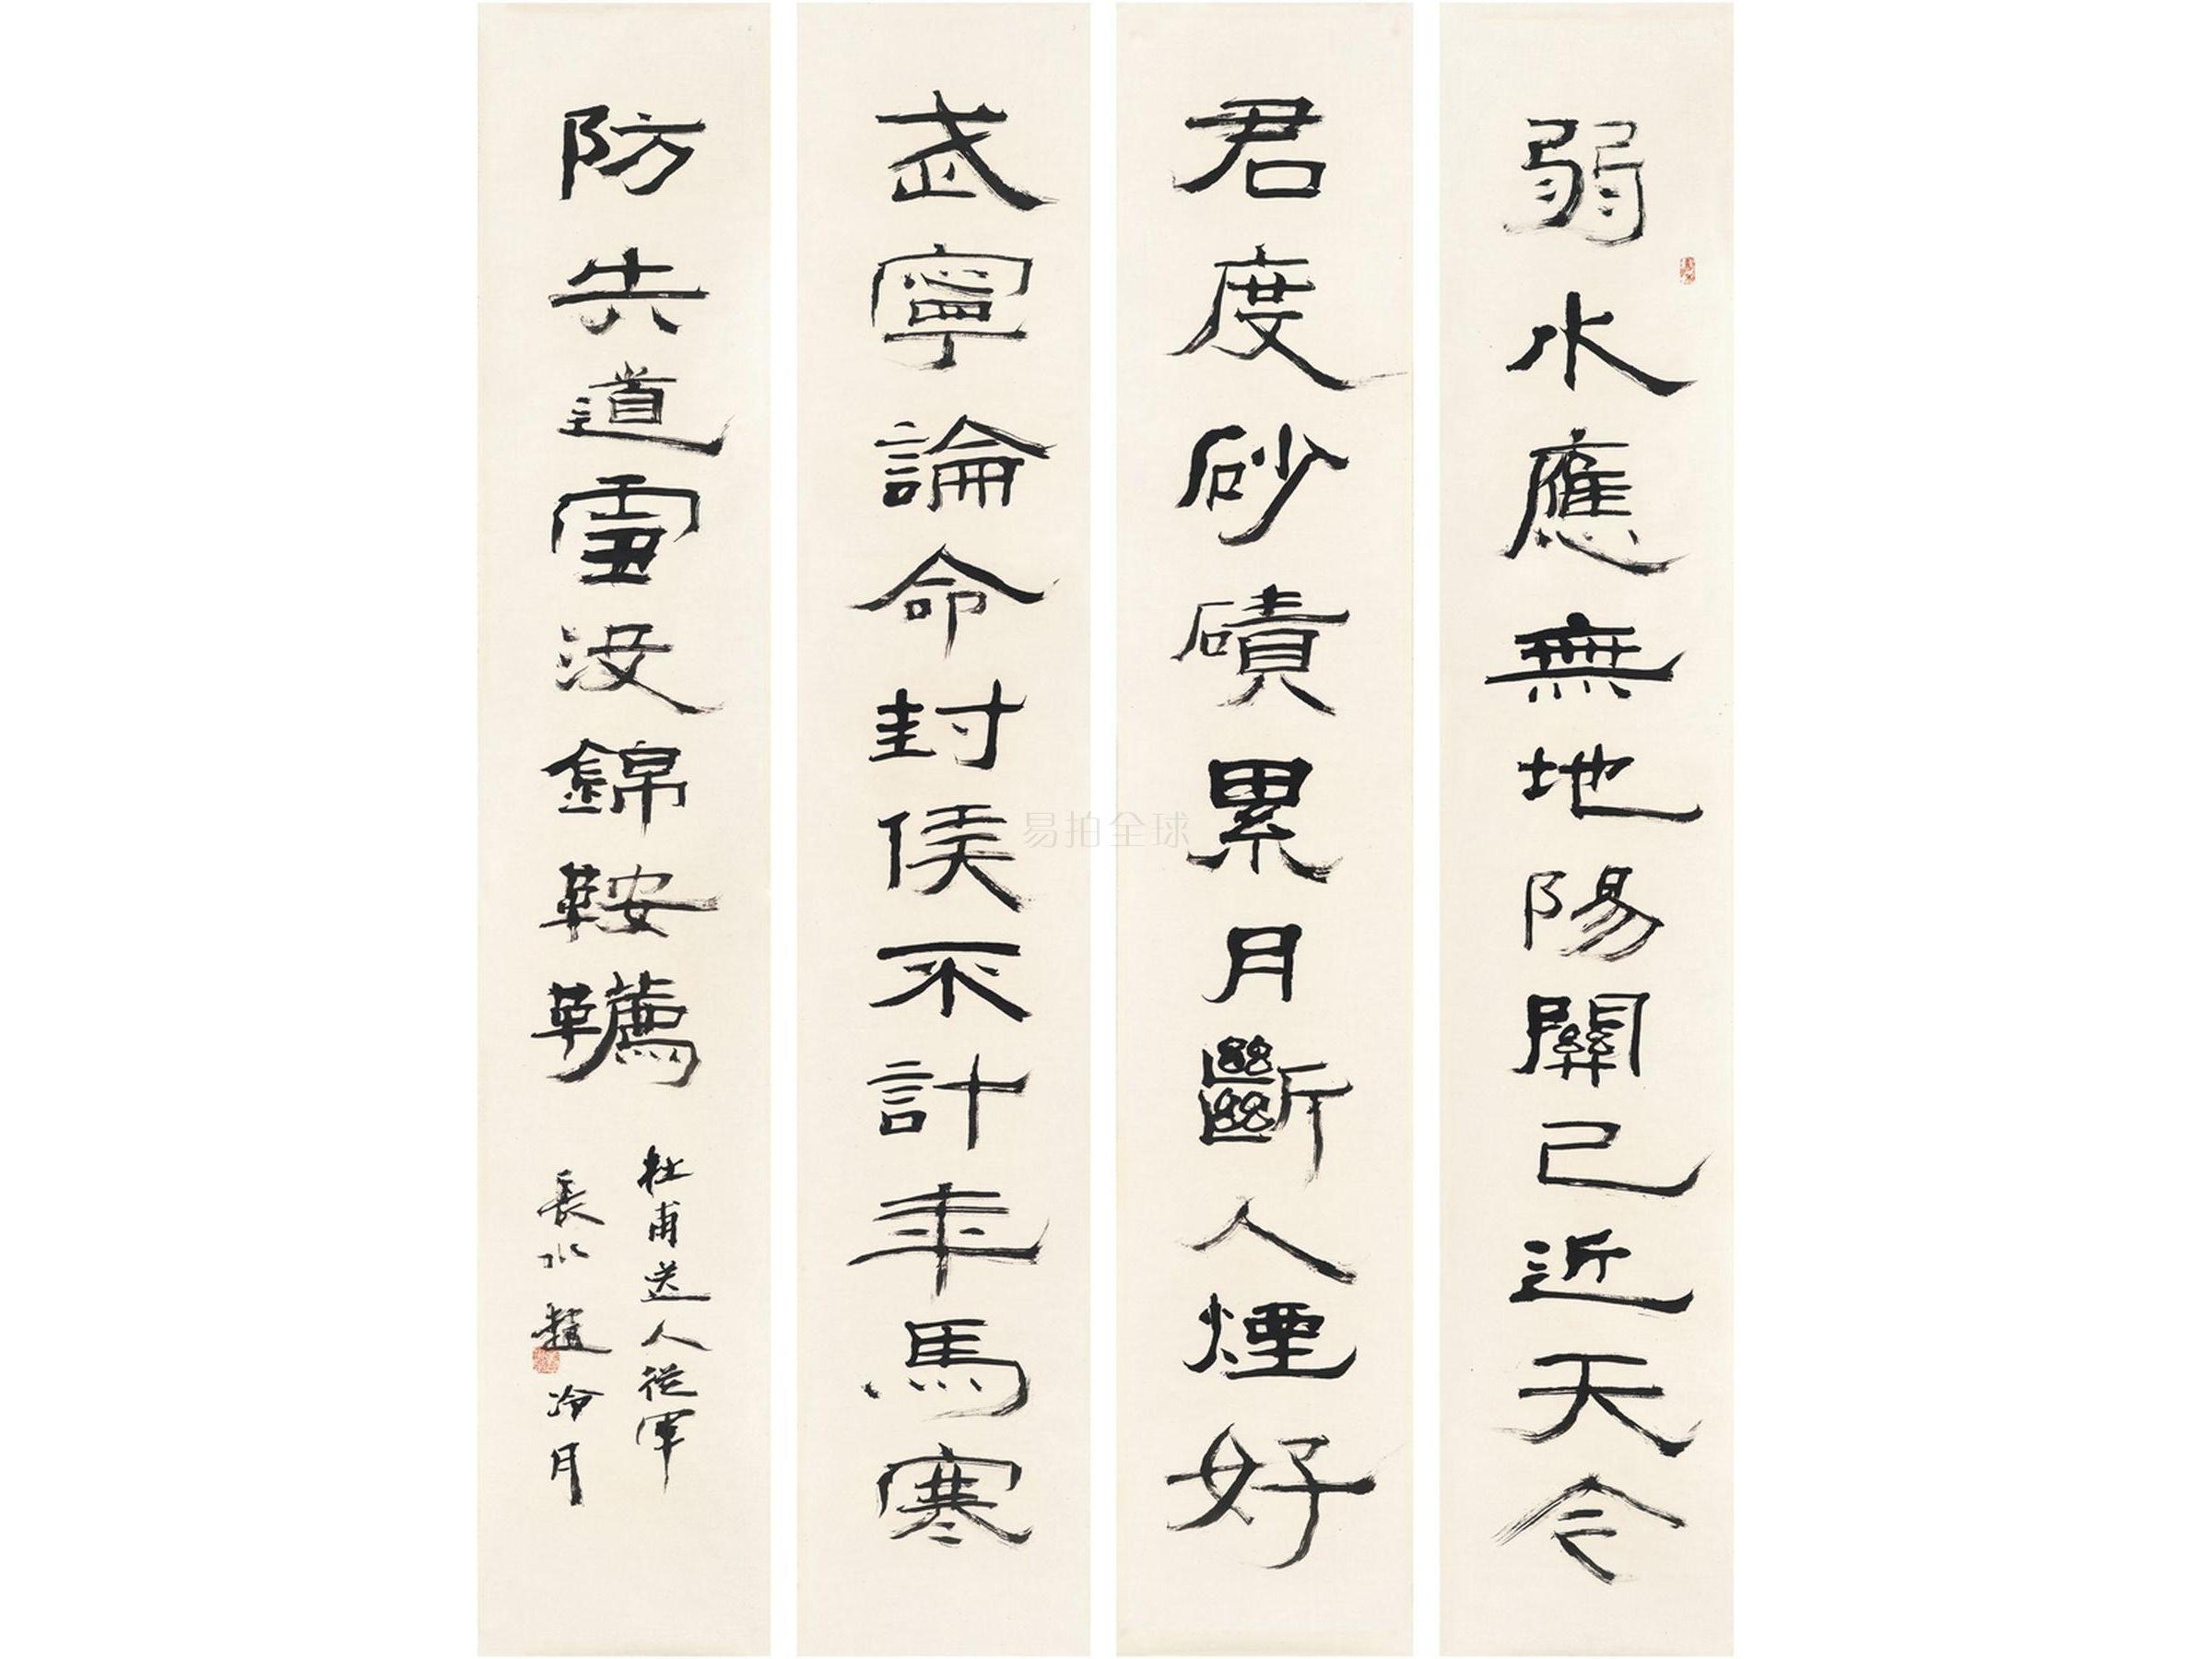 弱水應無地陽關已近天今
君度砂磧累月斷人煙好
武寧論命封侯不計年馬寒
防失道雪沒錦鞍韉
杜甫送人從軍
長水趙冷月
易拍全球